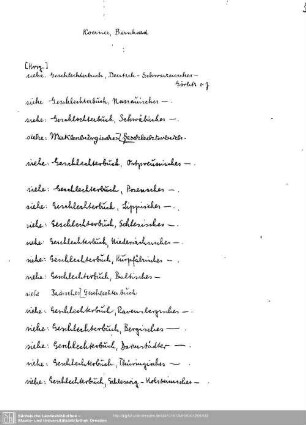 Koerner, Bernhard
:
[Hrsg.]
siehe Geschlechterbuch, Deutsch-Schweizerisches –
Görlitz o. J.
siehe Geschlechterbuch, Nassauisches –.
siehe: Geschlechterbuch, Schwäbisches –.
siehe: Mecklenburgisches] Geschlechterbuch.
siehe: Geschlechterbuch, Ostpreussisches –.
siehe: Geschlechterbuch, Posensches –.
siehe: Geschlechterbuch, Lippisches –.
siehe: Geschlechterbuch, Schlesisches –.
siehe: Geschlechterbuch, Niedersächsisches –.
siehe: Geschlechterbuch, Kurpfälzisches –.
siehe: Geschlechterbuch, Baltisches –
siehe Badisches] Geschlechterbuch
siehe: Geschlechterbuch, Ravensbergisches –.
siehe: Geschlechterbuch, Bergisches –.
siehe: Geschlechterbuch, Darmstädter –.
siehe: Geschlechterbuch, Thüringisches –.
siehe: Geschlechterbuch, Schleswig-Holsteinisches –.
Sächsische Landesbibliothek -
Staats- und Universitätsbibliothek Dresden